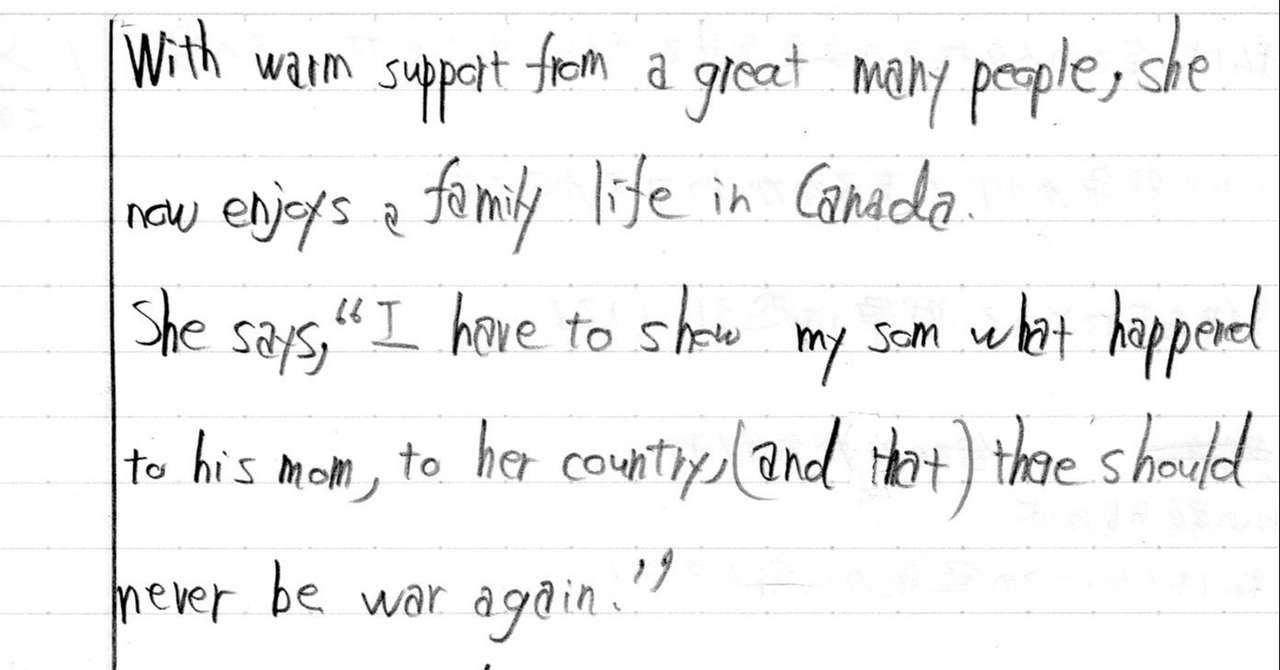 With warm support from a great many people, she
now enjoys a family life in Canada.
She says, "I have to show my som what happend
to his mom, to her country, (and that) there should
never be war again."